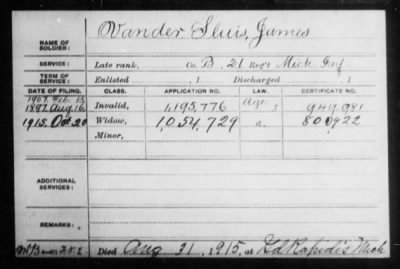 NAME OF SOLDIER: Vander Sluis, James
SERVICE: Late rank, Co. B, 21 Reg't Mich. Inf.
TERM OF SERVICE: Enlisted , 1 Discharged , 1
DATE OF FILING. CLASS. APPLICATION NO. LAW. CERTIFICATE NO.
1907. Feb. 13
1897 Aug. 16 Invalid, 1,195,776 949,981
1915. Oct. 20 Widow, 1,054,729 a. 800922
Minor,
ADDITIONAL SERVICES:
REMARKS:
Died Aug 31, 1915, at Gd Rapids Mich